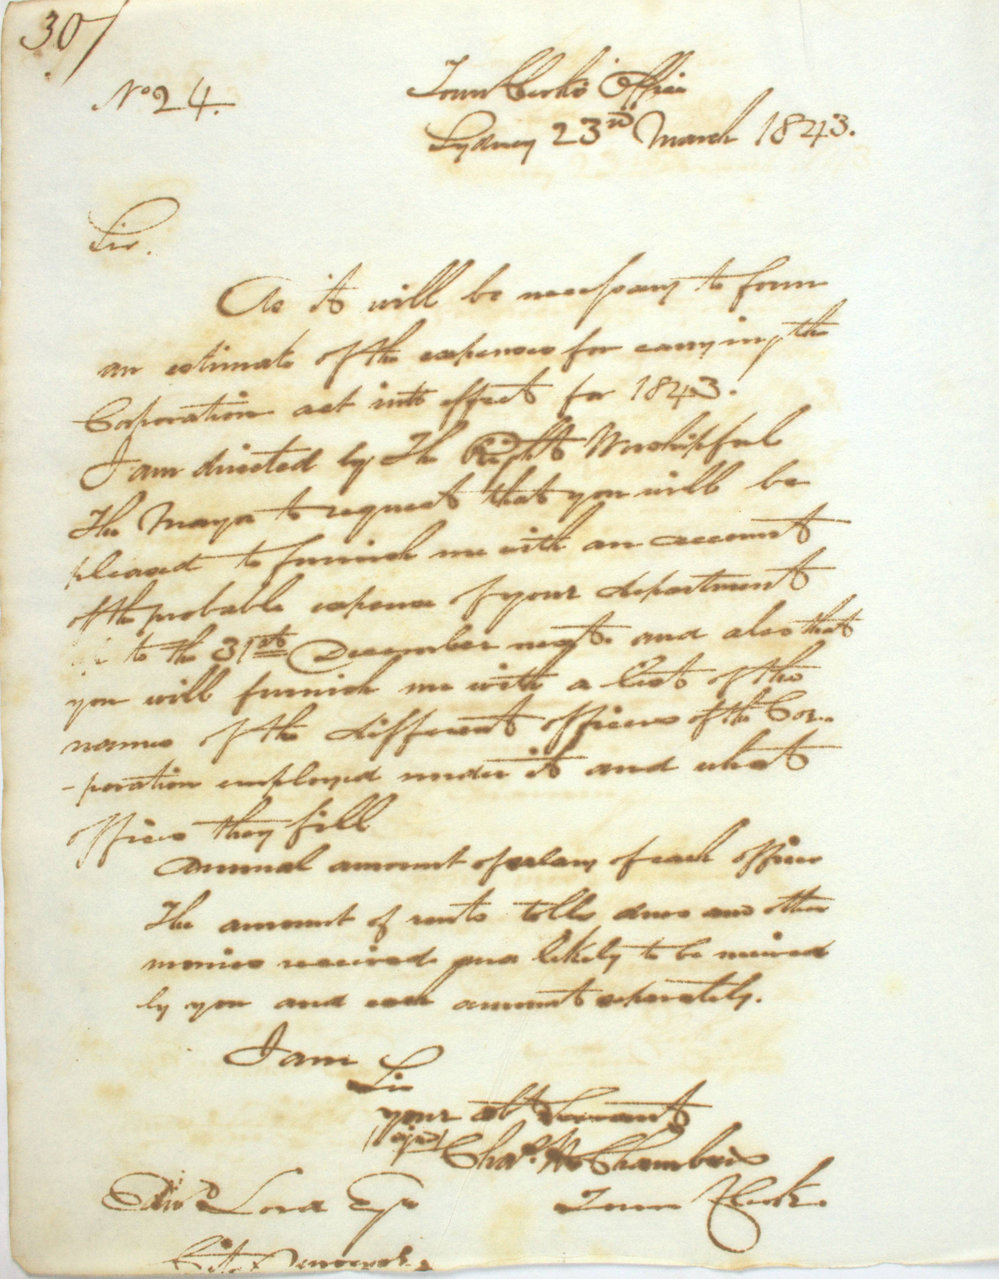 30/
No 24.
Town Clerk's Office
Sydney 23rd March 1843.
Sir.
As it will be necessary to form
an estimate of the expenses for carrying the
Corporation act into effect for 1843.
I am directed by The Right Worshipful
The Mayor to request that you will be
pleased to furnish me with an account
of the probable expense of your department
to the 31st December next. and also that
you will furnish me with a list of the
names of the different officers of the Cor-
-poration employed under it and what
offices they fill
Annual amount of salary of each officer
The amount of rents tolls dues and other
monies received and likely to be received
by you and each amount separately.
I am
Sir
your obt Servant
(signed) Chas. H. Chambers
Town Clerk.
Edwd Lord Esqr
City